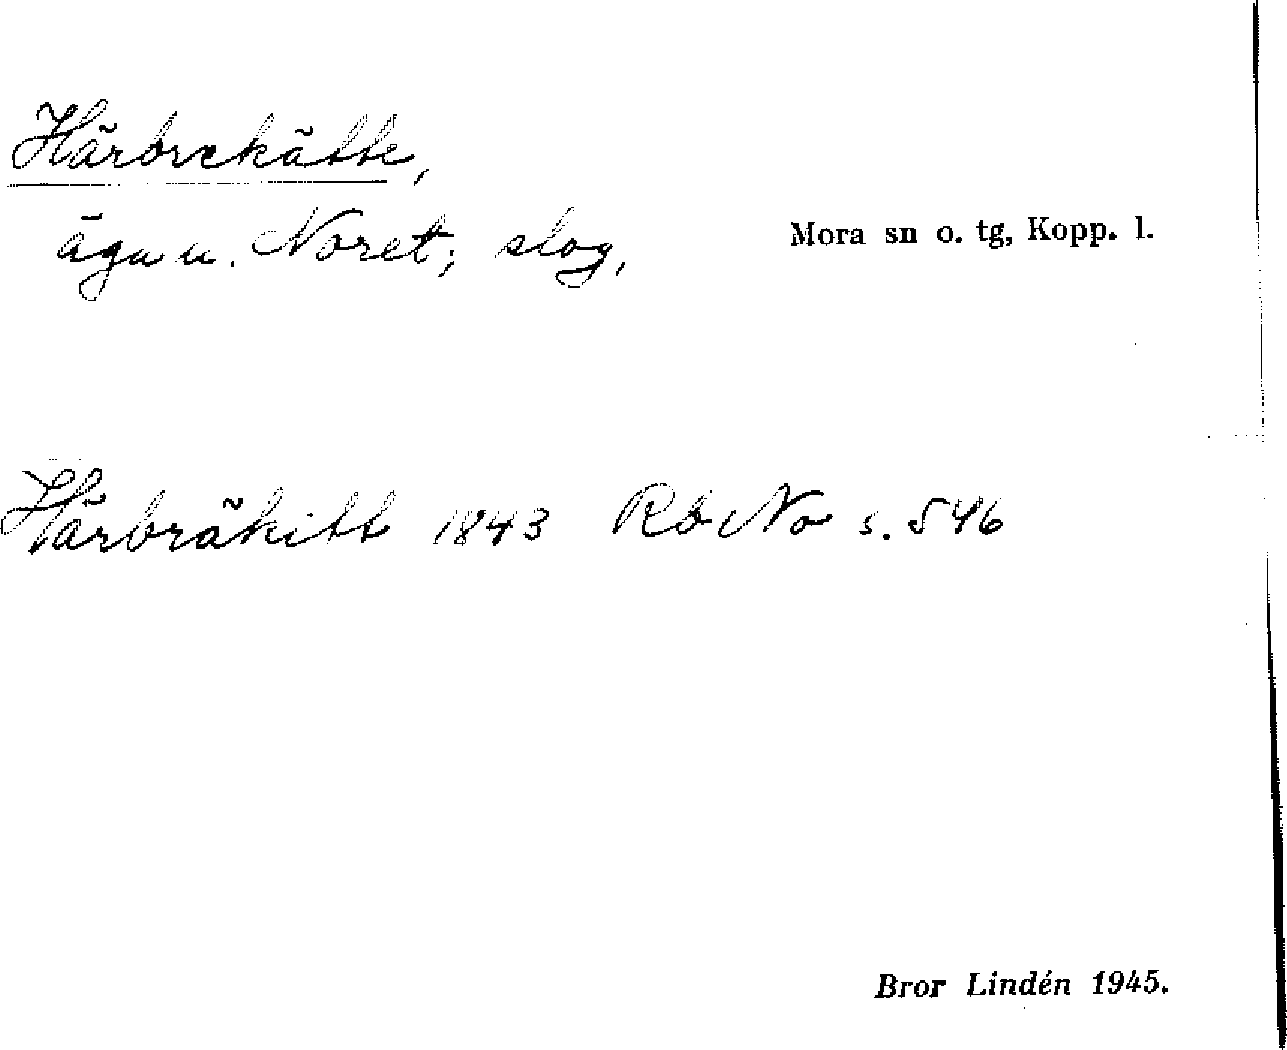 Härbrekätte,
äga u. Noret; slog, Mora sn o. tg, Kopp. l.
Härbräkitt 1843 Rb No s. 546
Bror Lindén 1945.